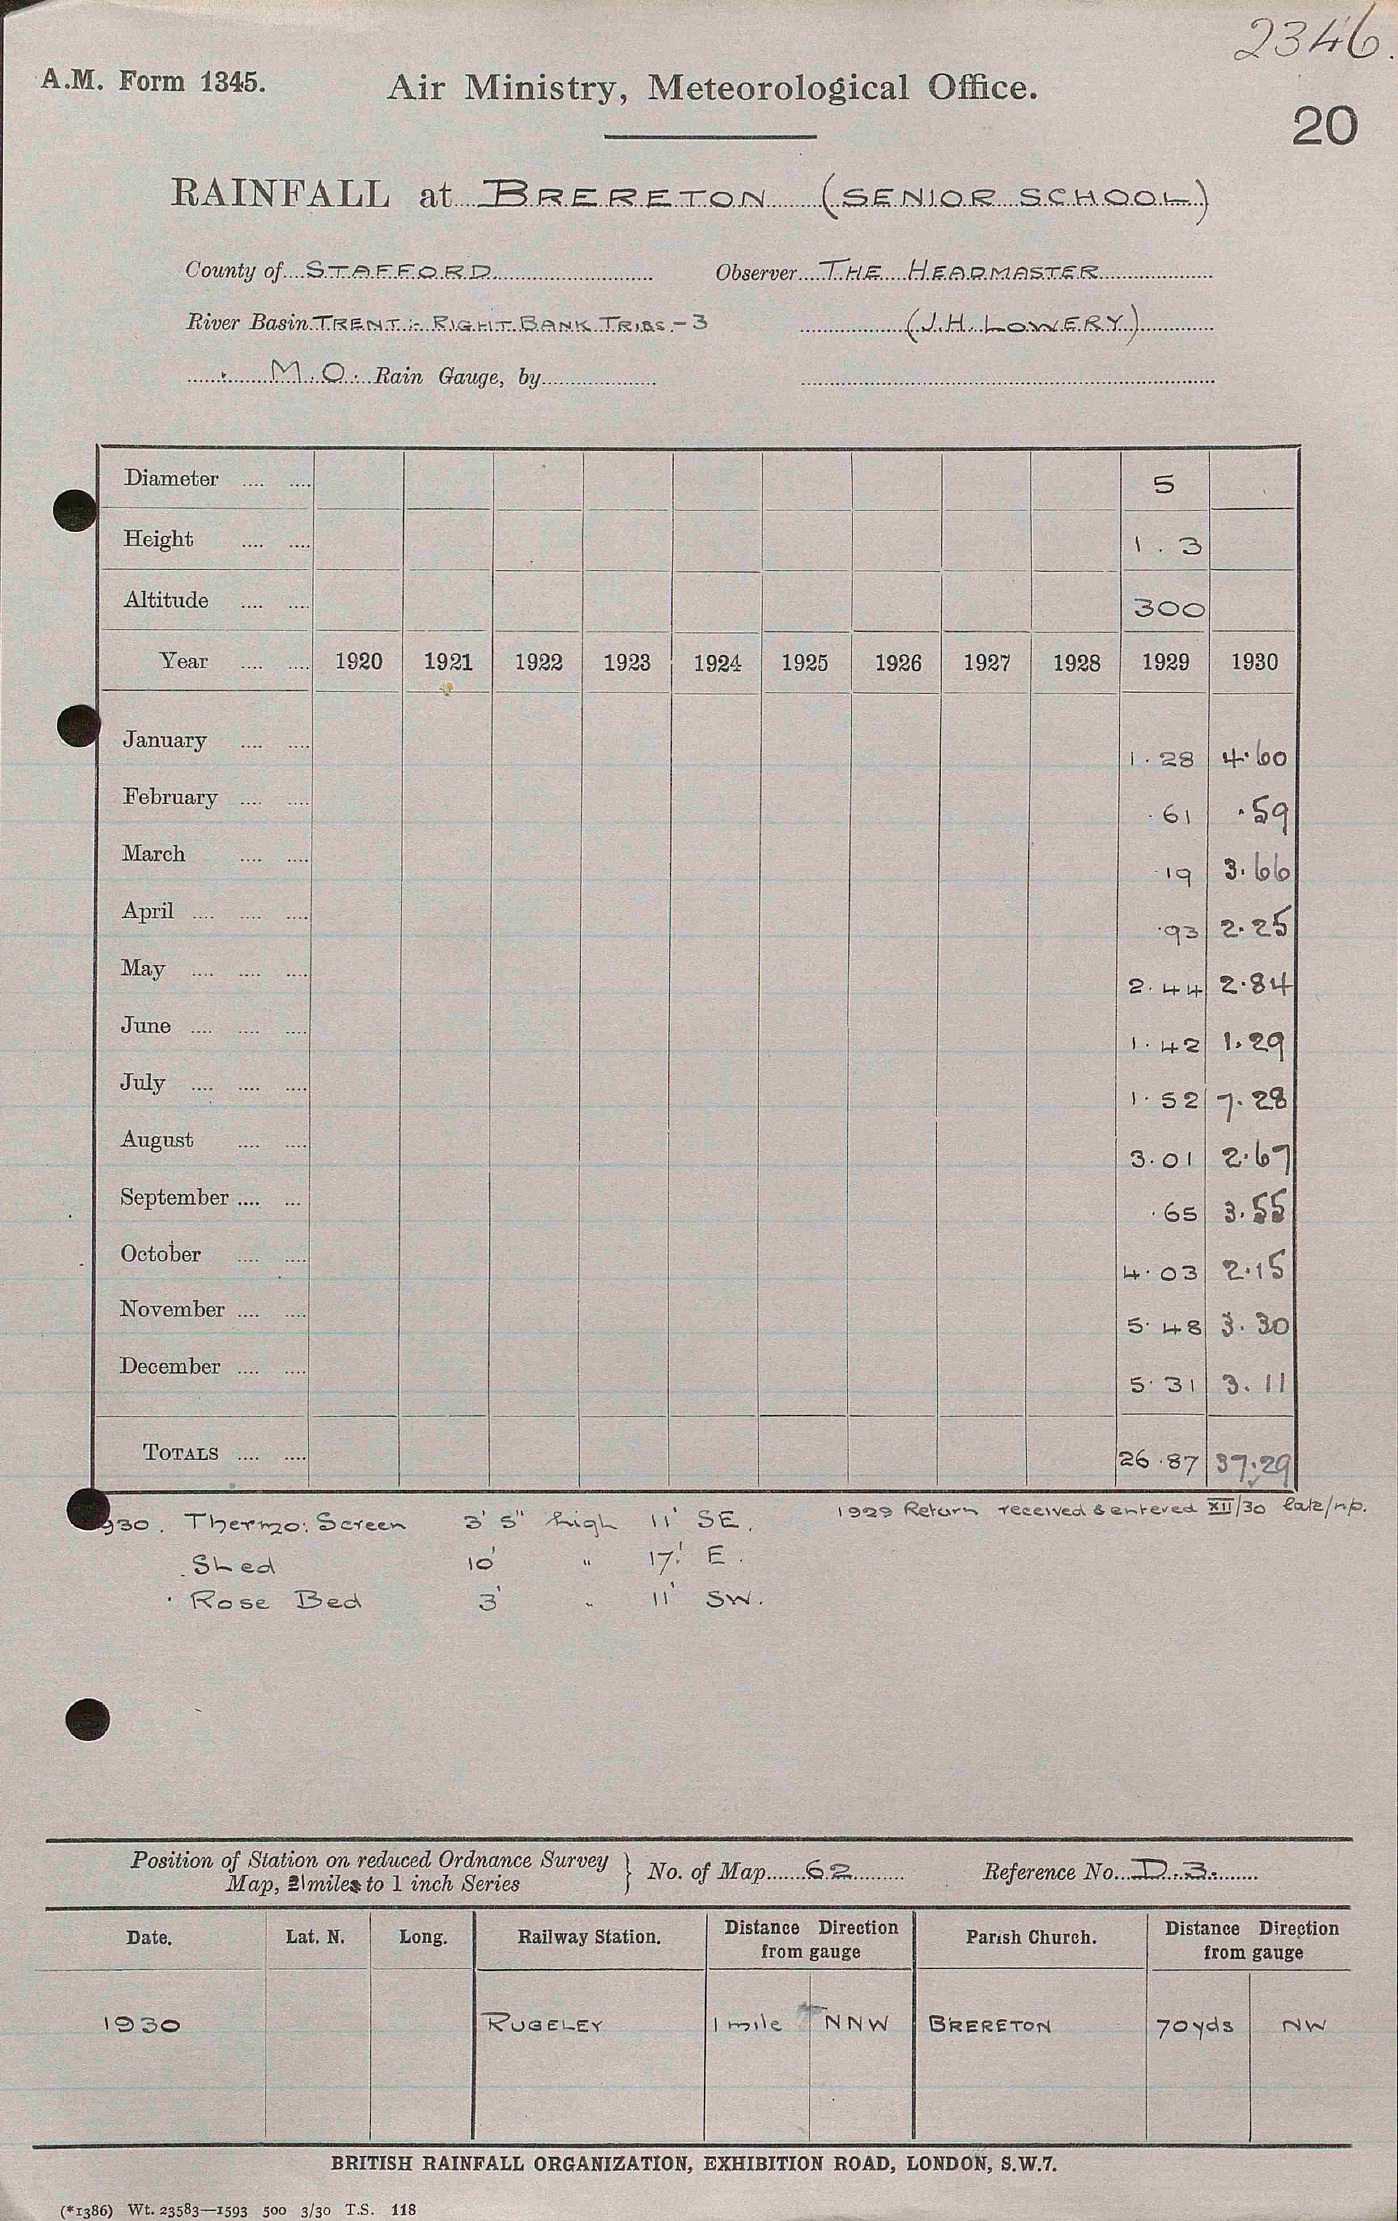 2346.
A.M. Form 1345. Air Ministry, Meteorological Office.
20
RAINFALL at BRERETON (SENIOR SCHOOL)
County of STAFFORD Observer THE HEADMASTER
River Basin TRENT :- RIGHT BANK TRIBS.-3 (J.H. LOWERY)
M.O. Rain Gauge, by
Diameter 5
Height 1.3
Altitude 300
Year 1920 1921 1922 1923 1924 1925 1926 1927 1928 1929 1930
January 1.28 4.60
February .61 .59
March .19 3.66
April .93 2.25
May 2.44 2.84
June 1.42 1.29
July 1.52 7.28
August 3.01 2.67
September .65 3.55
October 4.03 2.15
November 5.48 3.30
December 5.31 3.11
TOTALS 26.87 37.29
1929 Return received & entered XII/30 late/n.p.
930. Thermo: Screen 3' 5" high 11' SE.
Shed 10' " 17' E.
Rose Bed 3' " 11' SW.
Position of Station on reduced Ordnance Survey
Map, 2 miles to 1 inch Series } No. of Map 62 Reference No. D.3.
Date. Lat. N. Long. Railway Station. Distance Direction from gauge Parish Church. Distance Direction from gauge
1930 RUGELEY 1 mile NNW BRERETON 70 yds NW
BRITISH RAINFALL ORGANIZATION, EXHIBITION ROAD, LONDON, S.W.7.
(*1386) Wt. 23583—1593 500 3/30 T.S. 118